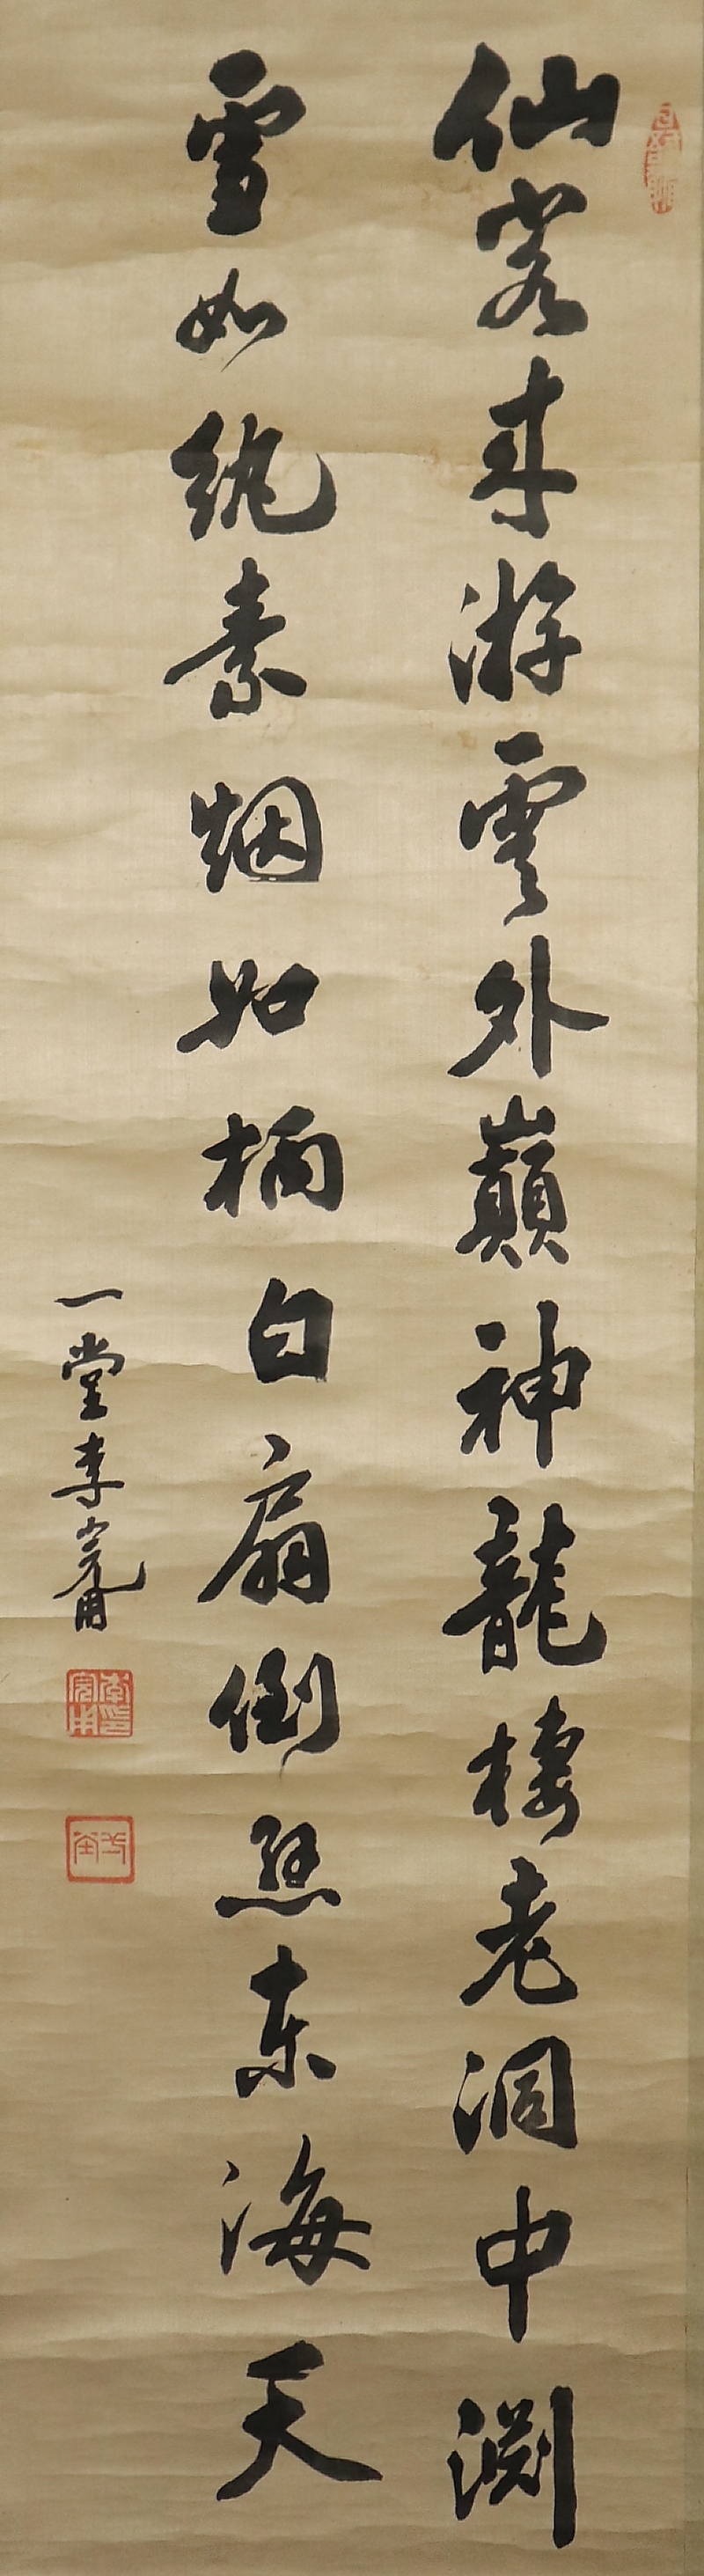 仙客来游雲外巔神龍棲老洞中渊
雪如紈素烟如柄白扇倒懸東海天
一堂李完用
李完用印
一堂